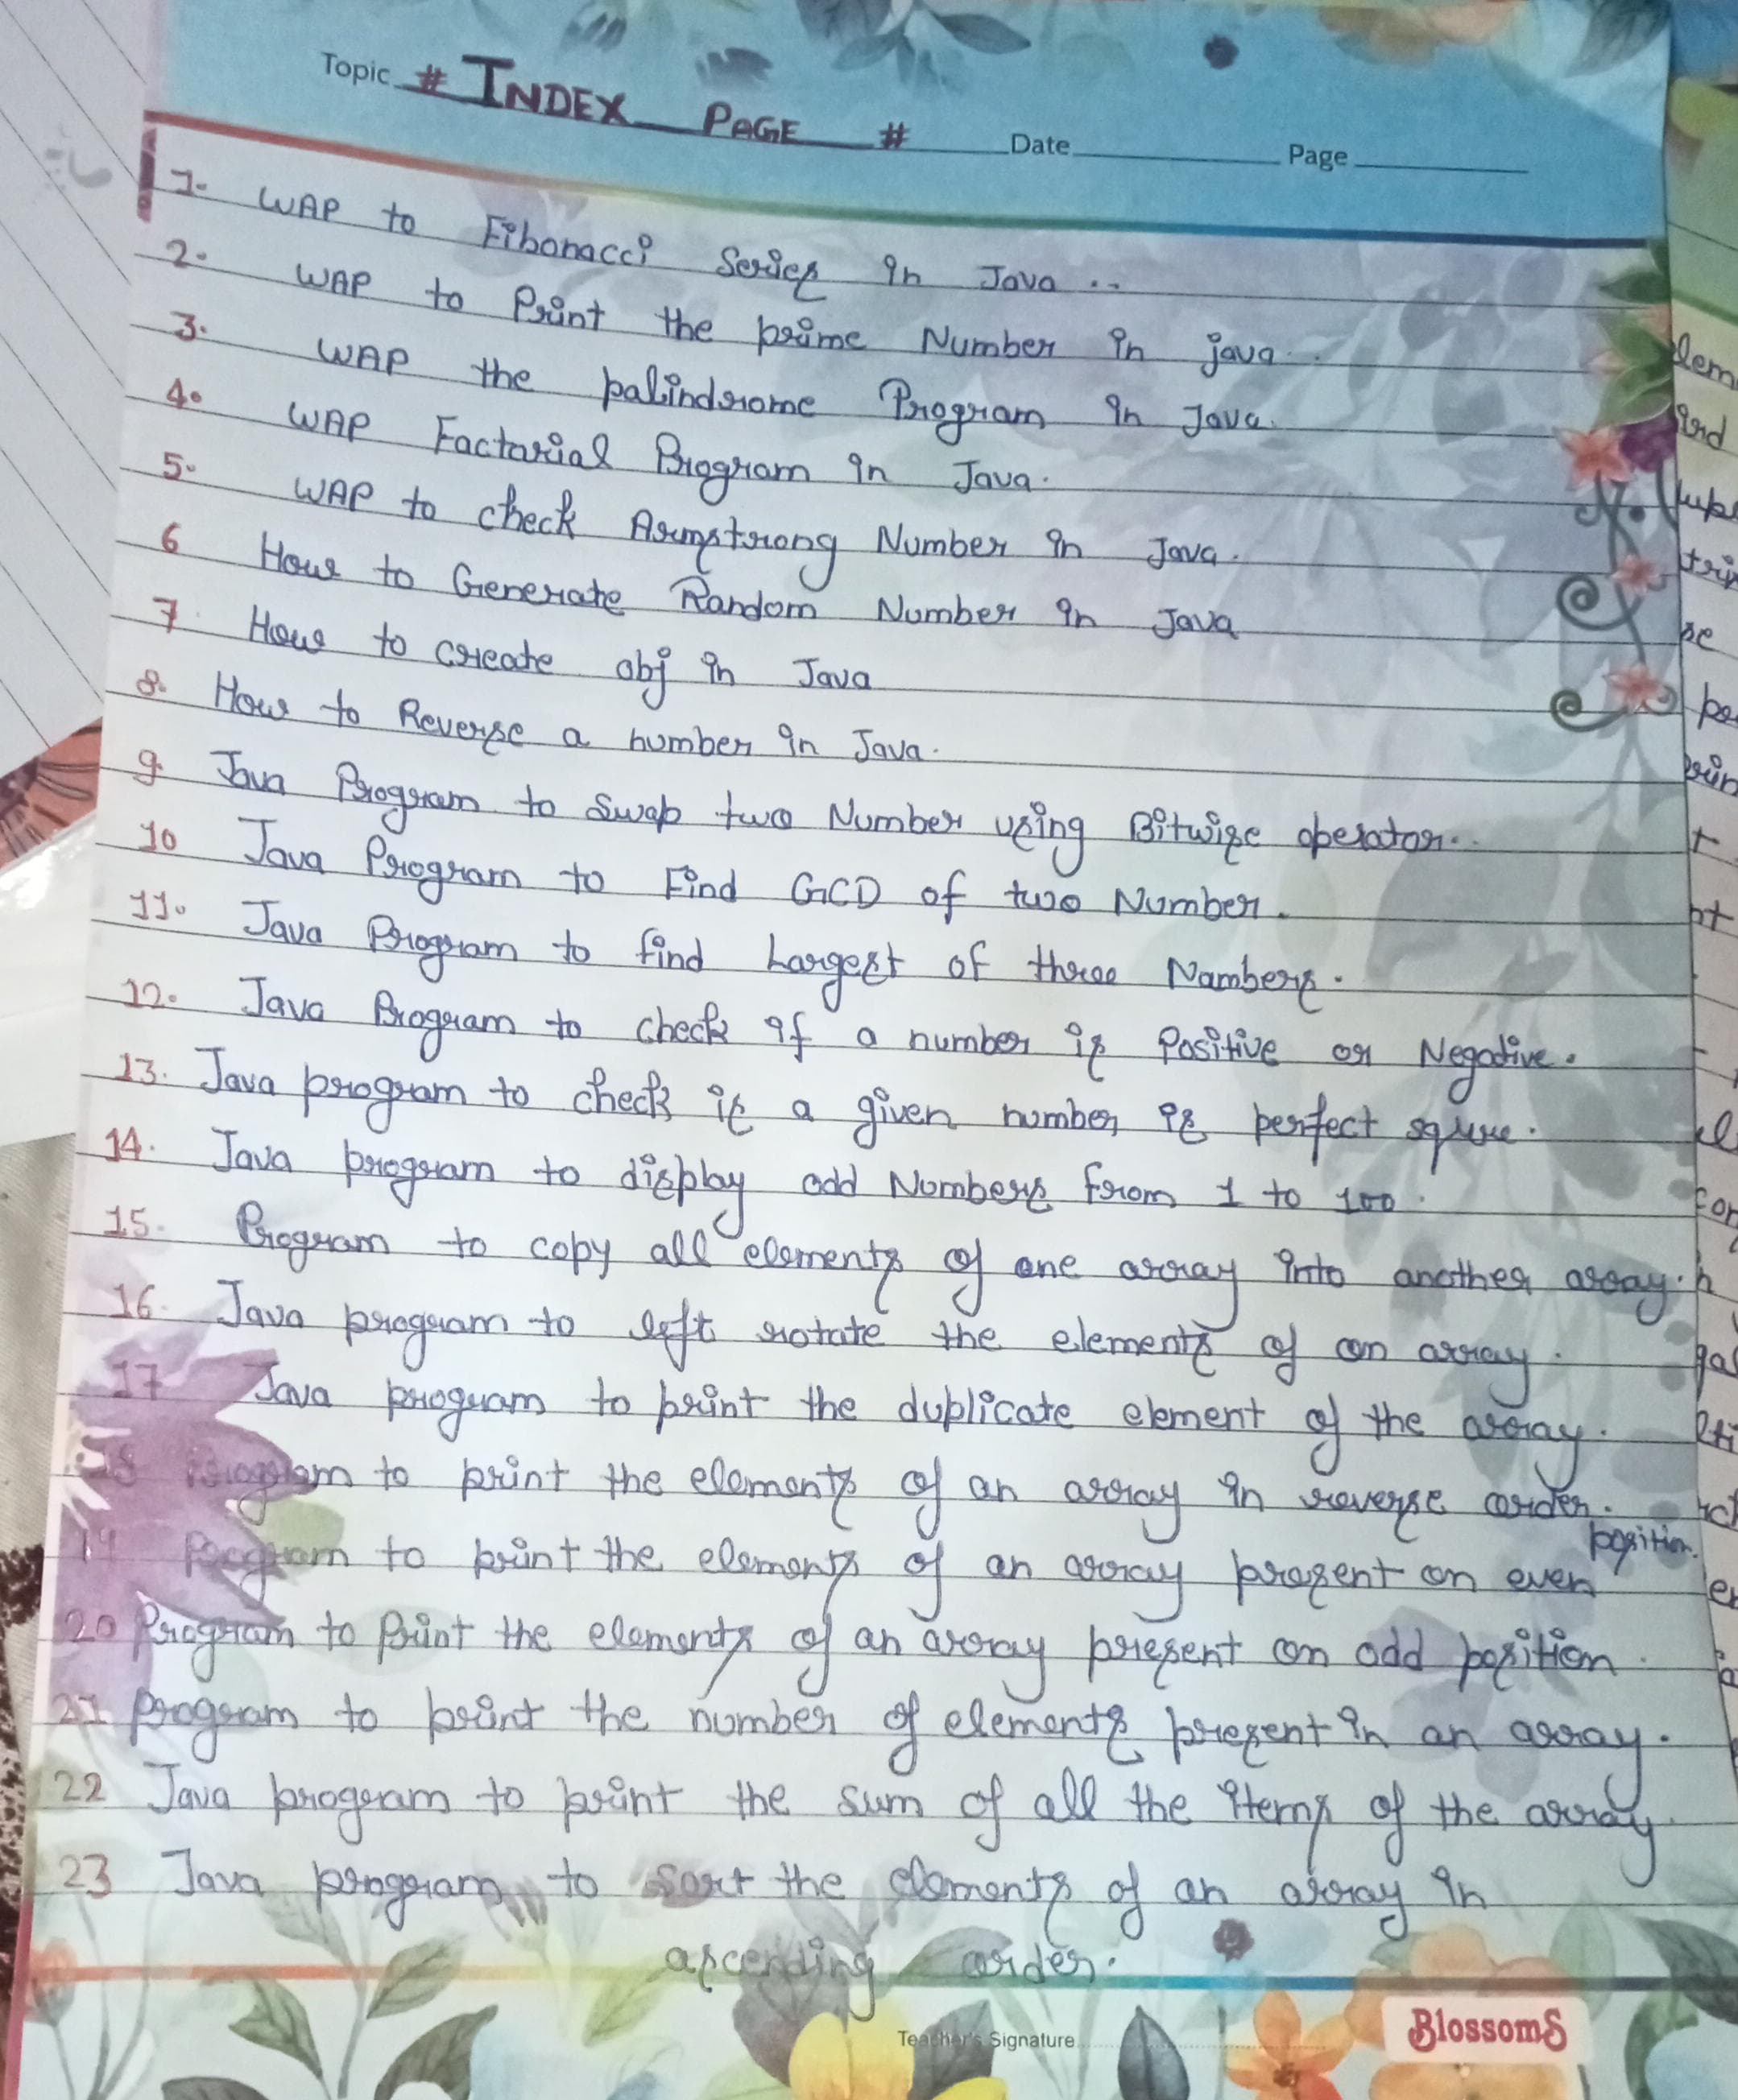 Topic # INDEX PAGE # Date Page
1. WAP to Fibonacci Series in Java ..
2. WAP to Print the prime Number in java..
3. WAP the palindrome Program in Java.
4. WAP Factarial Program in Java.
5. WAP to check Armstrong Number in Java.
6 How to Generate Random Number in Java
7 How to create obj in Java
8. How to Reverse a number in Java.
9. Java Program to Swap two Number using Bitwise operator..
10 Java Program to Find GCD of two Number.
11. Java Program to find Largest of three Nambers.
12. Java Program to check if a number is Positive or Negative.
13. Java program to check if a given number is perfect squre.
14. Java program to display odd Numbers from 1 to 100.
15. Program to copy all elements of one array into another array.
16. Java program to left rotate the elements of an array.
17 Java program to print the duplicate element of the array.
18 Program to print the elements of an array in reverse order.
19 Program to print the elements of an array present on even position.
20 Program to Print the elements of an array present on odd position.
21 program to print the number of elements present in an array.
22 Java program to print the sum of all the items of the array.
23 Java program to sort the elements of an array in
ascending order.
Teacher's Signature
BlossomS